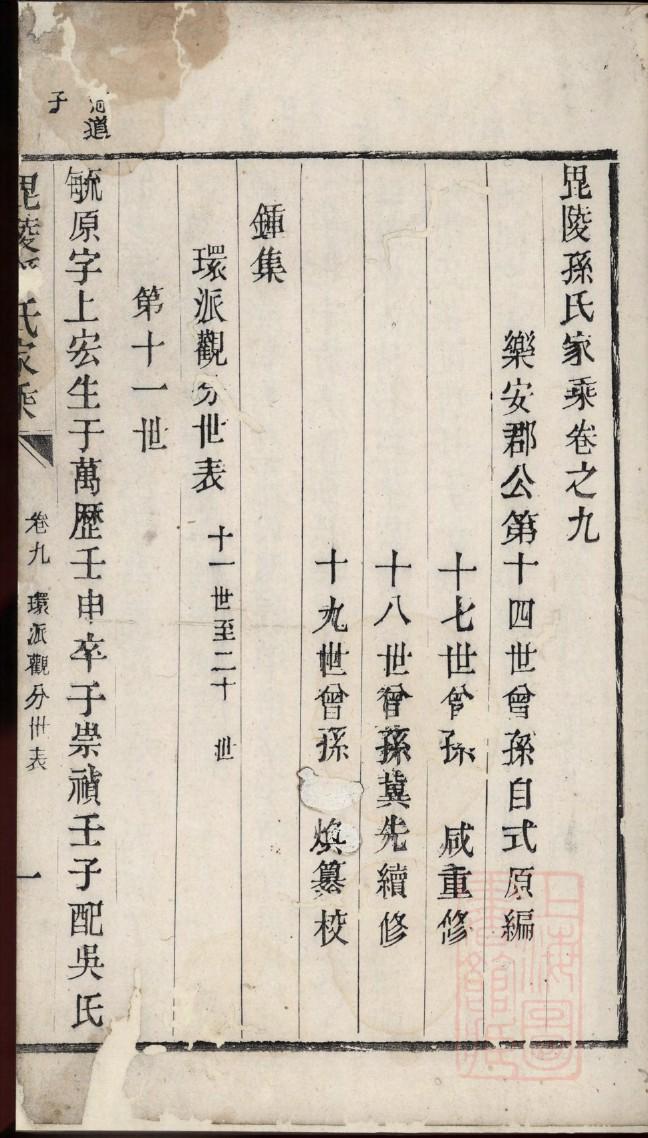 毘陵孫氏家乘卷之九
樂安郡公第十四世曾孫自式原編
十七世曾孫 咸重修
十八世曾孫冀先續修
十九世曾孫 煥纂校
鍾集
環派觀分世表 十一世至二十 世
第十一世
毓原字上宏生于萬歷壬申卒于崇禎壬子配吳氏
毘陵 氏家乘 卷九 環派觀分世表 一
道
子